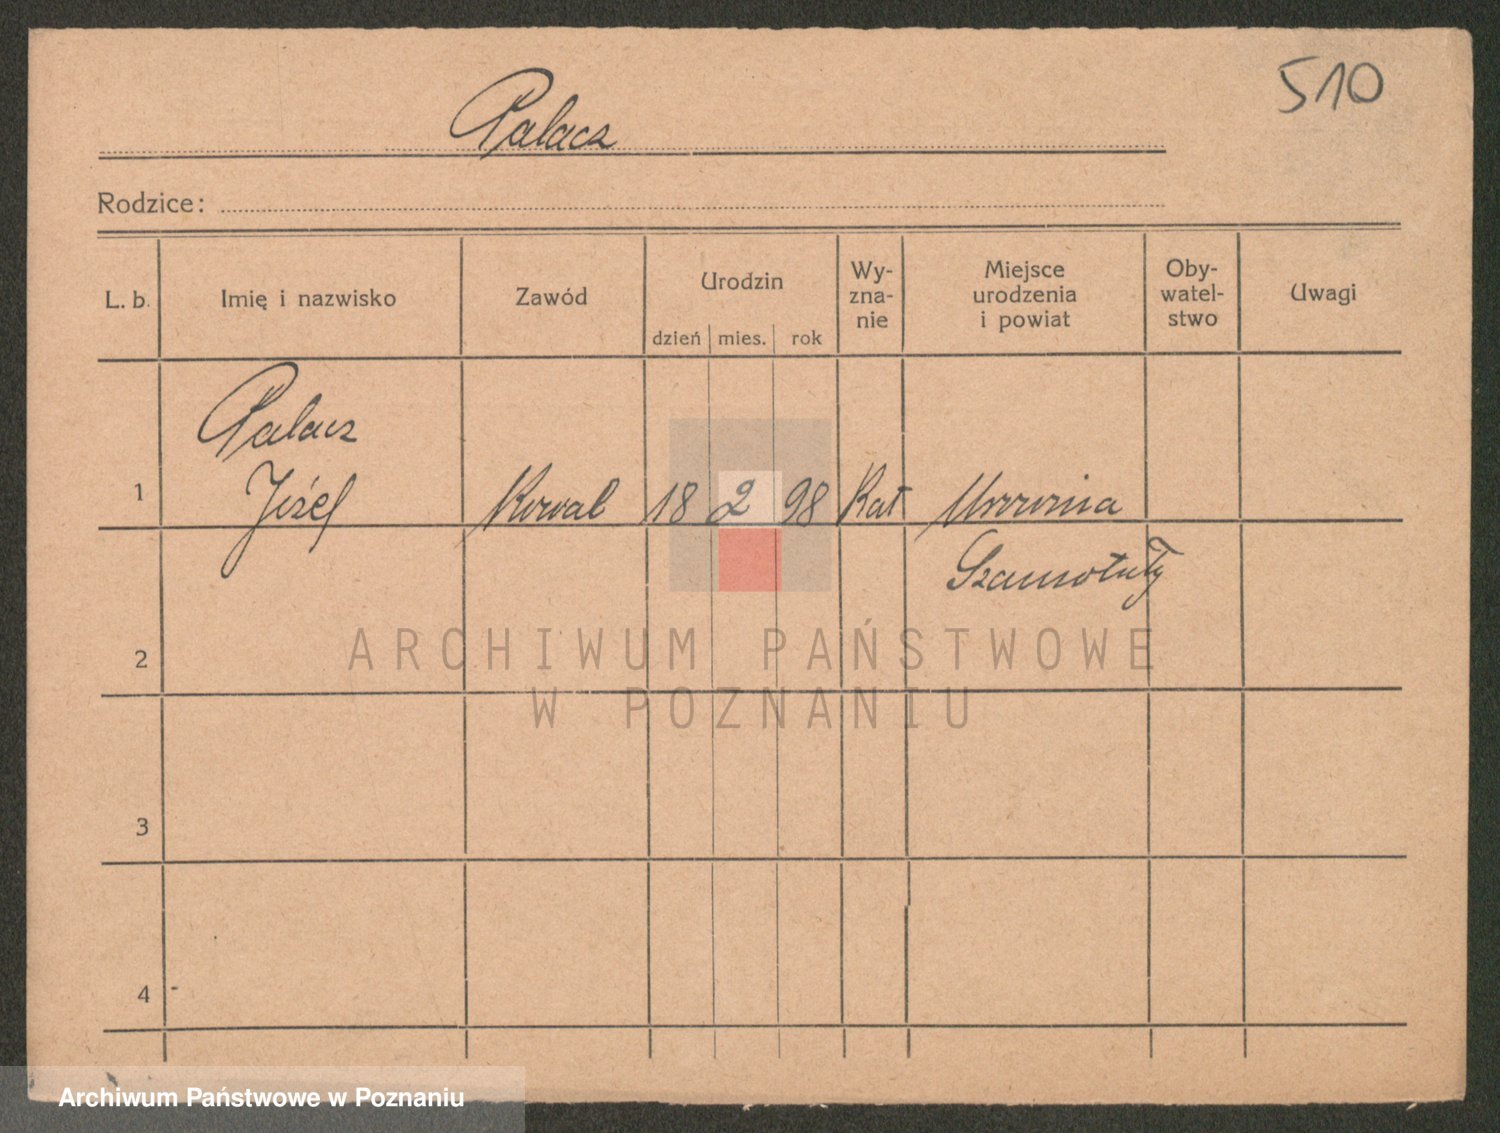 510
Palacz
Rodzice:
L. b.
Imię i nazwisko
Zawód
Urodzin
dzień mies. rok
Wy-
zna-
nie
Miejsce
urodzenia
i powiat
Oby-
watel-
stwo
Uwagi
Palacz
1 Józef Kowal 18 2 98 Kat
Szamotuły
2
3
4
ARCHIWUM PAŃSTWOWE
W POZNANIU
Archiwum Państwowe w Poznaniu